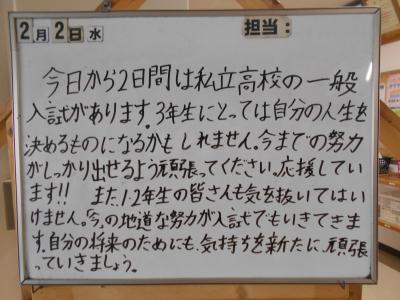 2月2日水 担当:
今日から2日間は私立高校の一般
入試があります。3年生にとっては自分の人生を
決めるものになるかもしれません。今までの努力
がしっかり出せるよう頑張ってください。応援してい
ます!! また、1・2年生の皆さんも気を抜いてはい
けません。今の地道な努力が入試でもいきてきま
す。自分の将来のためにも、気持ちを新たに、頑張
っていきましょう。